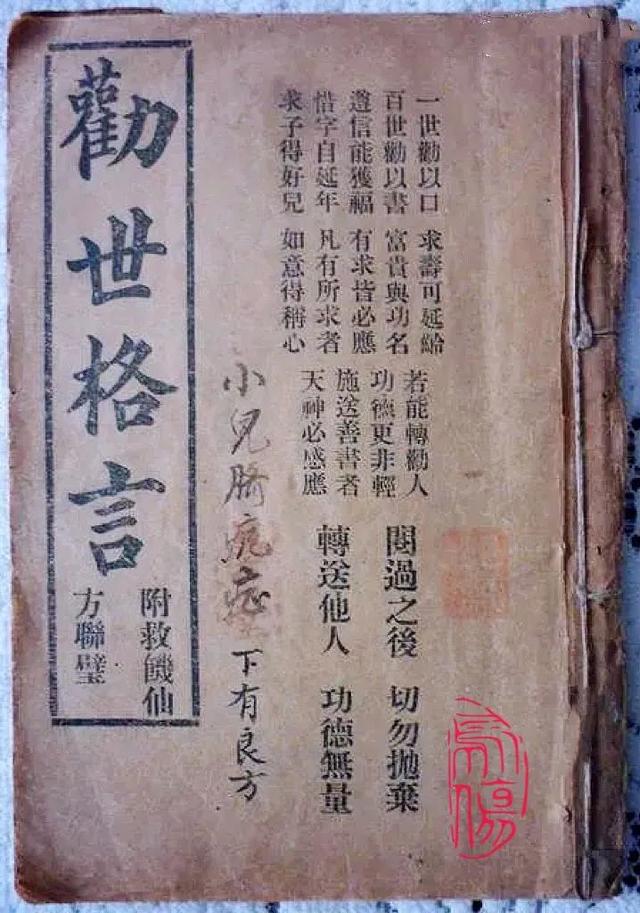 一世勸以口
百世勸以書
遵信能獲福
惜字自延年
求子得好兒
求壽可延紿
富貴與功名
有求皆必應
凡有所求者
如意得稱心
若能轉勸人
功德更非輕
施送善書者
天神必感應
閱過之後 切勿拋棄
轉送他人 功德無量
小兒臍疯症下有良方
勸世格言
附救饑仙
方聯璧